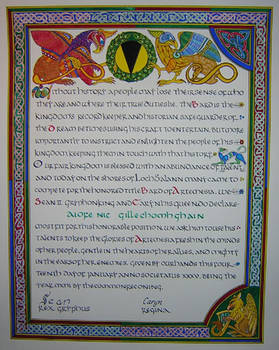 Without history a people may lose their sense of who
they are and where their true duties lie. The Bard is the
kingdom's record keeper and historian, safe guarder of
the Dream. Betimes using his craft to entertain, but more
important to instruct and enlighten the people of his
kingdom, keeping them in touch with that history.
Our fair kingdom is blessed with an abundance of talent
and today on the shores of Loch Salann many came to
compete for the honored title Bard of Artemesia. We
Sean II, Gryphon King and Caryn his queen do declare
Auore nic Gillechomhghain
most fit for this honorable position. We ask her to use his
talents to keep the Glories of Artemesia fresh in the minds
of her people, gentle in the hearts of her allies, and mighty
in the ear of her enemies. Given by our hands this four-
teenth day of January anno societatus XXXV, being year
MM by the common reckoning.
Sean
Rex Gryphus
Caryn
Regina